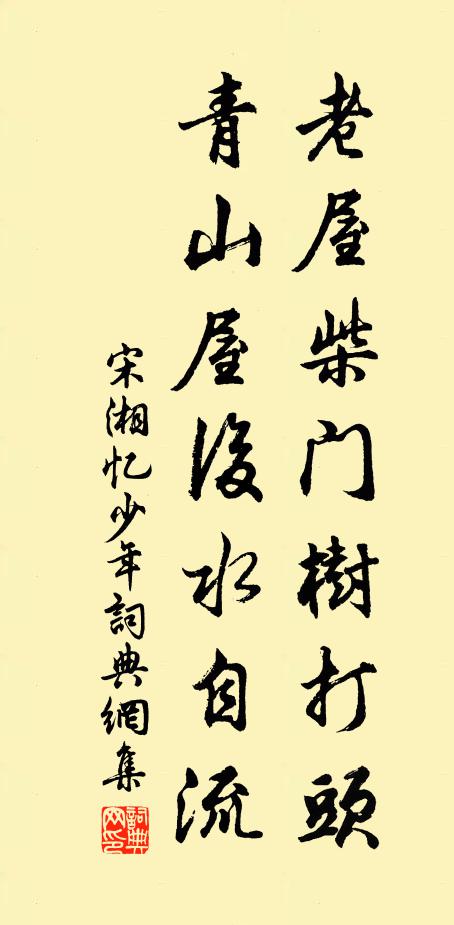 老屋柴门樹打頭
青山屋後水自流
宋湘忆少年詞典網集
詞典网印